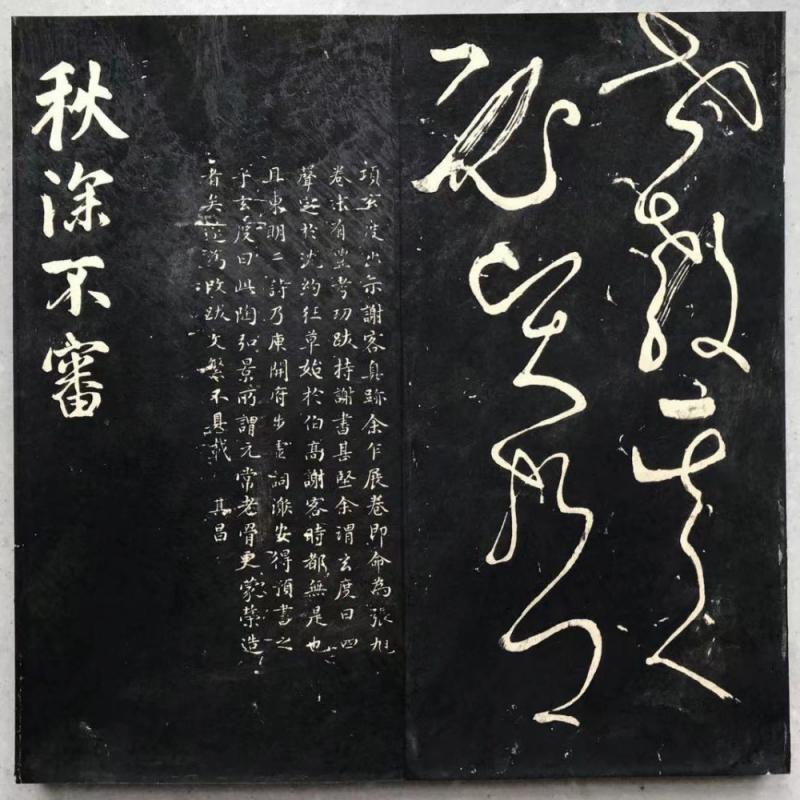 世教其人
必賢哲
項玄度出示謝客真跡余乍展卷即命為張旭
卷末有豐考功跋持謝書甚堅余謂玄度曰四
聲始於沈約狂草始於伯高謝客時都無是也
且東明二詩乃庾開府步虛詞謝安得預書之
乎玄度曰此陶弘景所謂元常老骨更蒙榮造
者矣遂為改跋文繁不具載 其昌
秋深不審